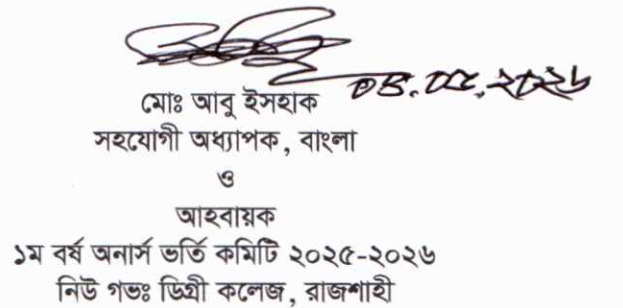 মোঃ আবু ইসহাক
সহযোগী অধ্যাপক, বাংলা
ও
আহবায়ক
১ম বর্ষ অনার্স ভর্তি কমিটি ২০২৫-২০২৬
নিউ গভঃ ডিগ্রী কলেজ, রাজশাহী